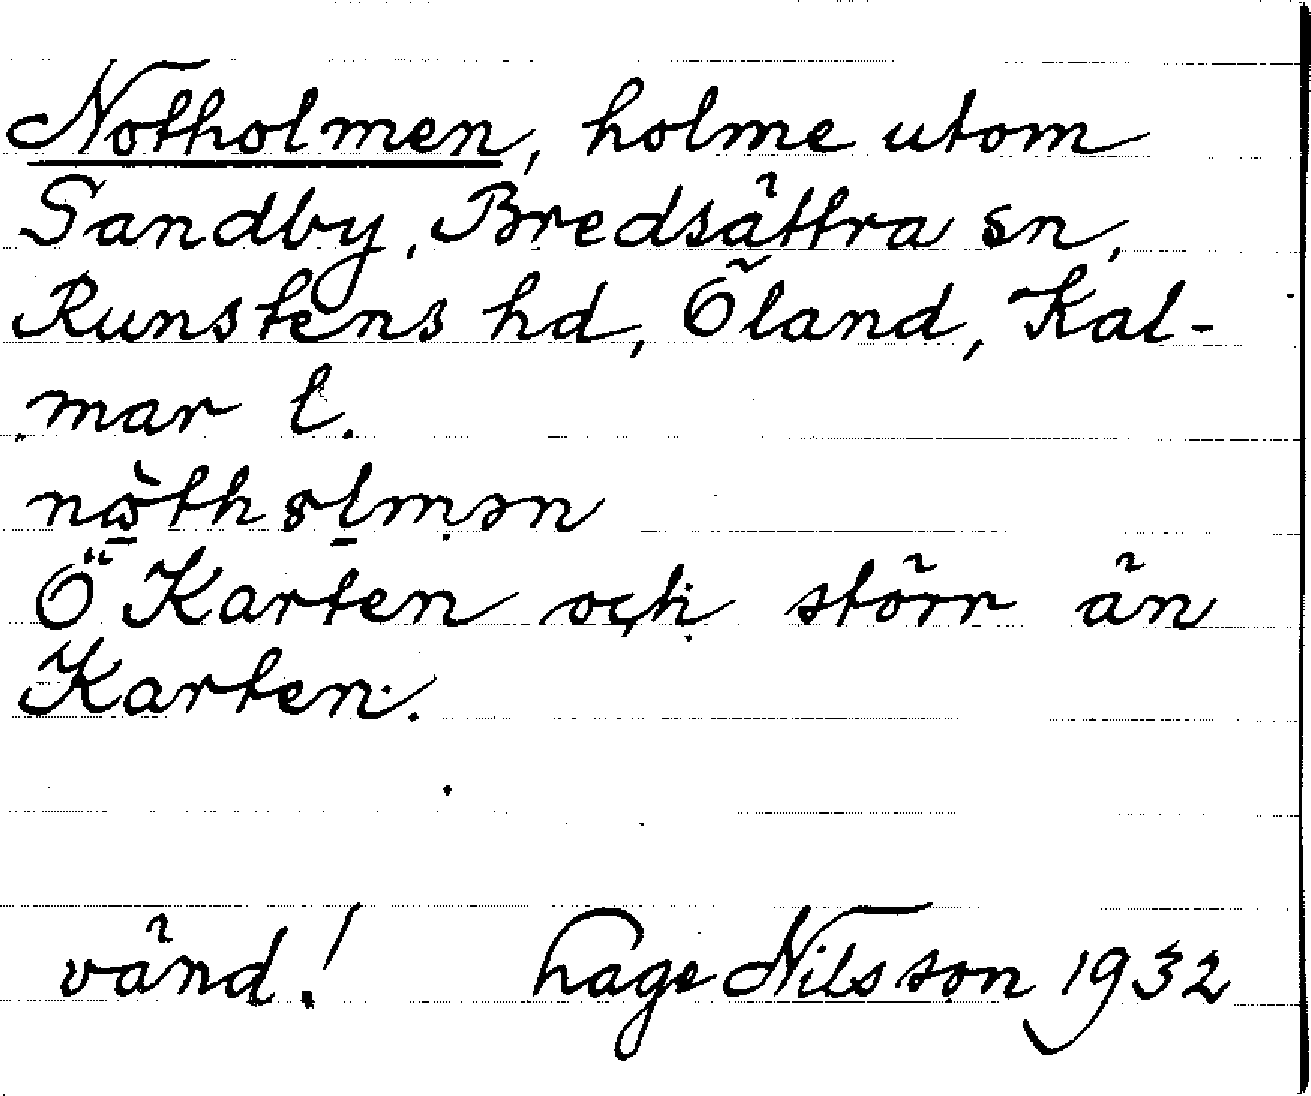 Notholmen, holme utom
Sandby, Bredsättra sn,
Runstens hd, Öland, Kal-
mar l.
Ö Karten och störr än
Karten.
vänd! Hage Nilsson 1932